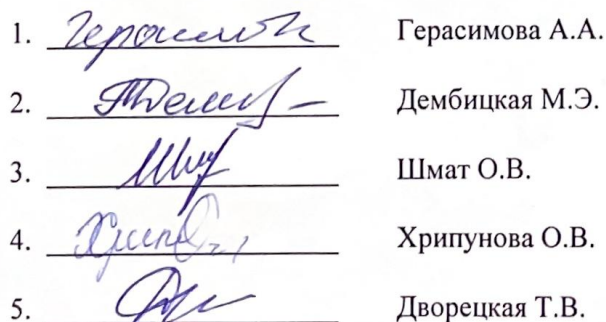 1. Герасимова А.А.
2. Дембицкая М.Э.
3. Шмат О.В.
4. Хрипунова О.В.
5. Дворецкая Т.В.